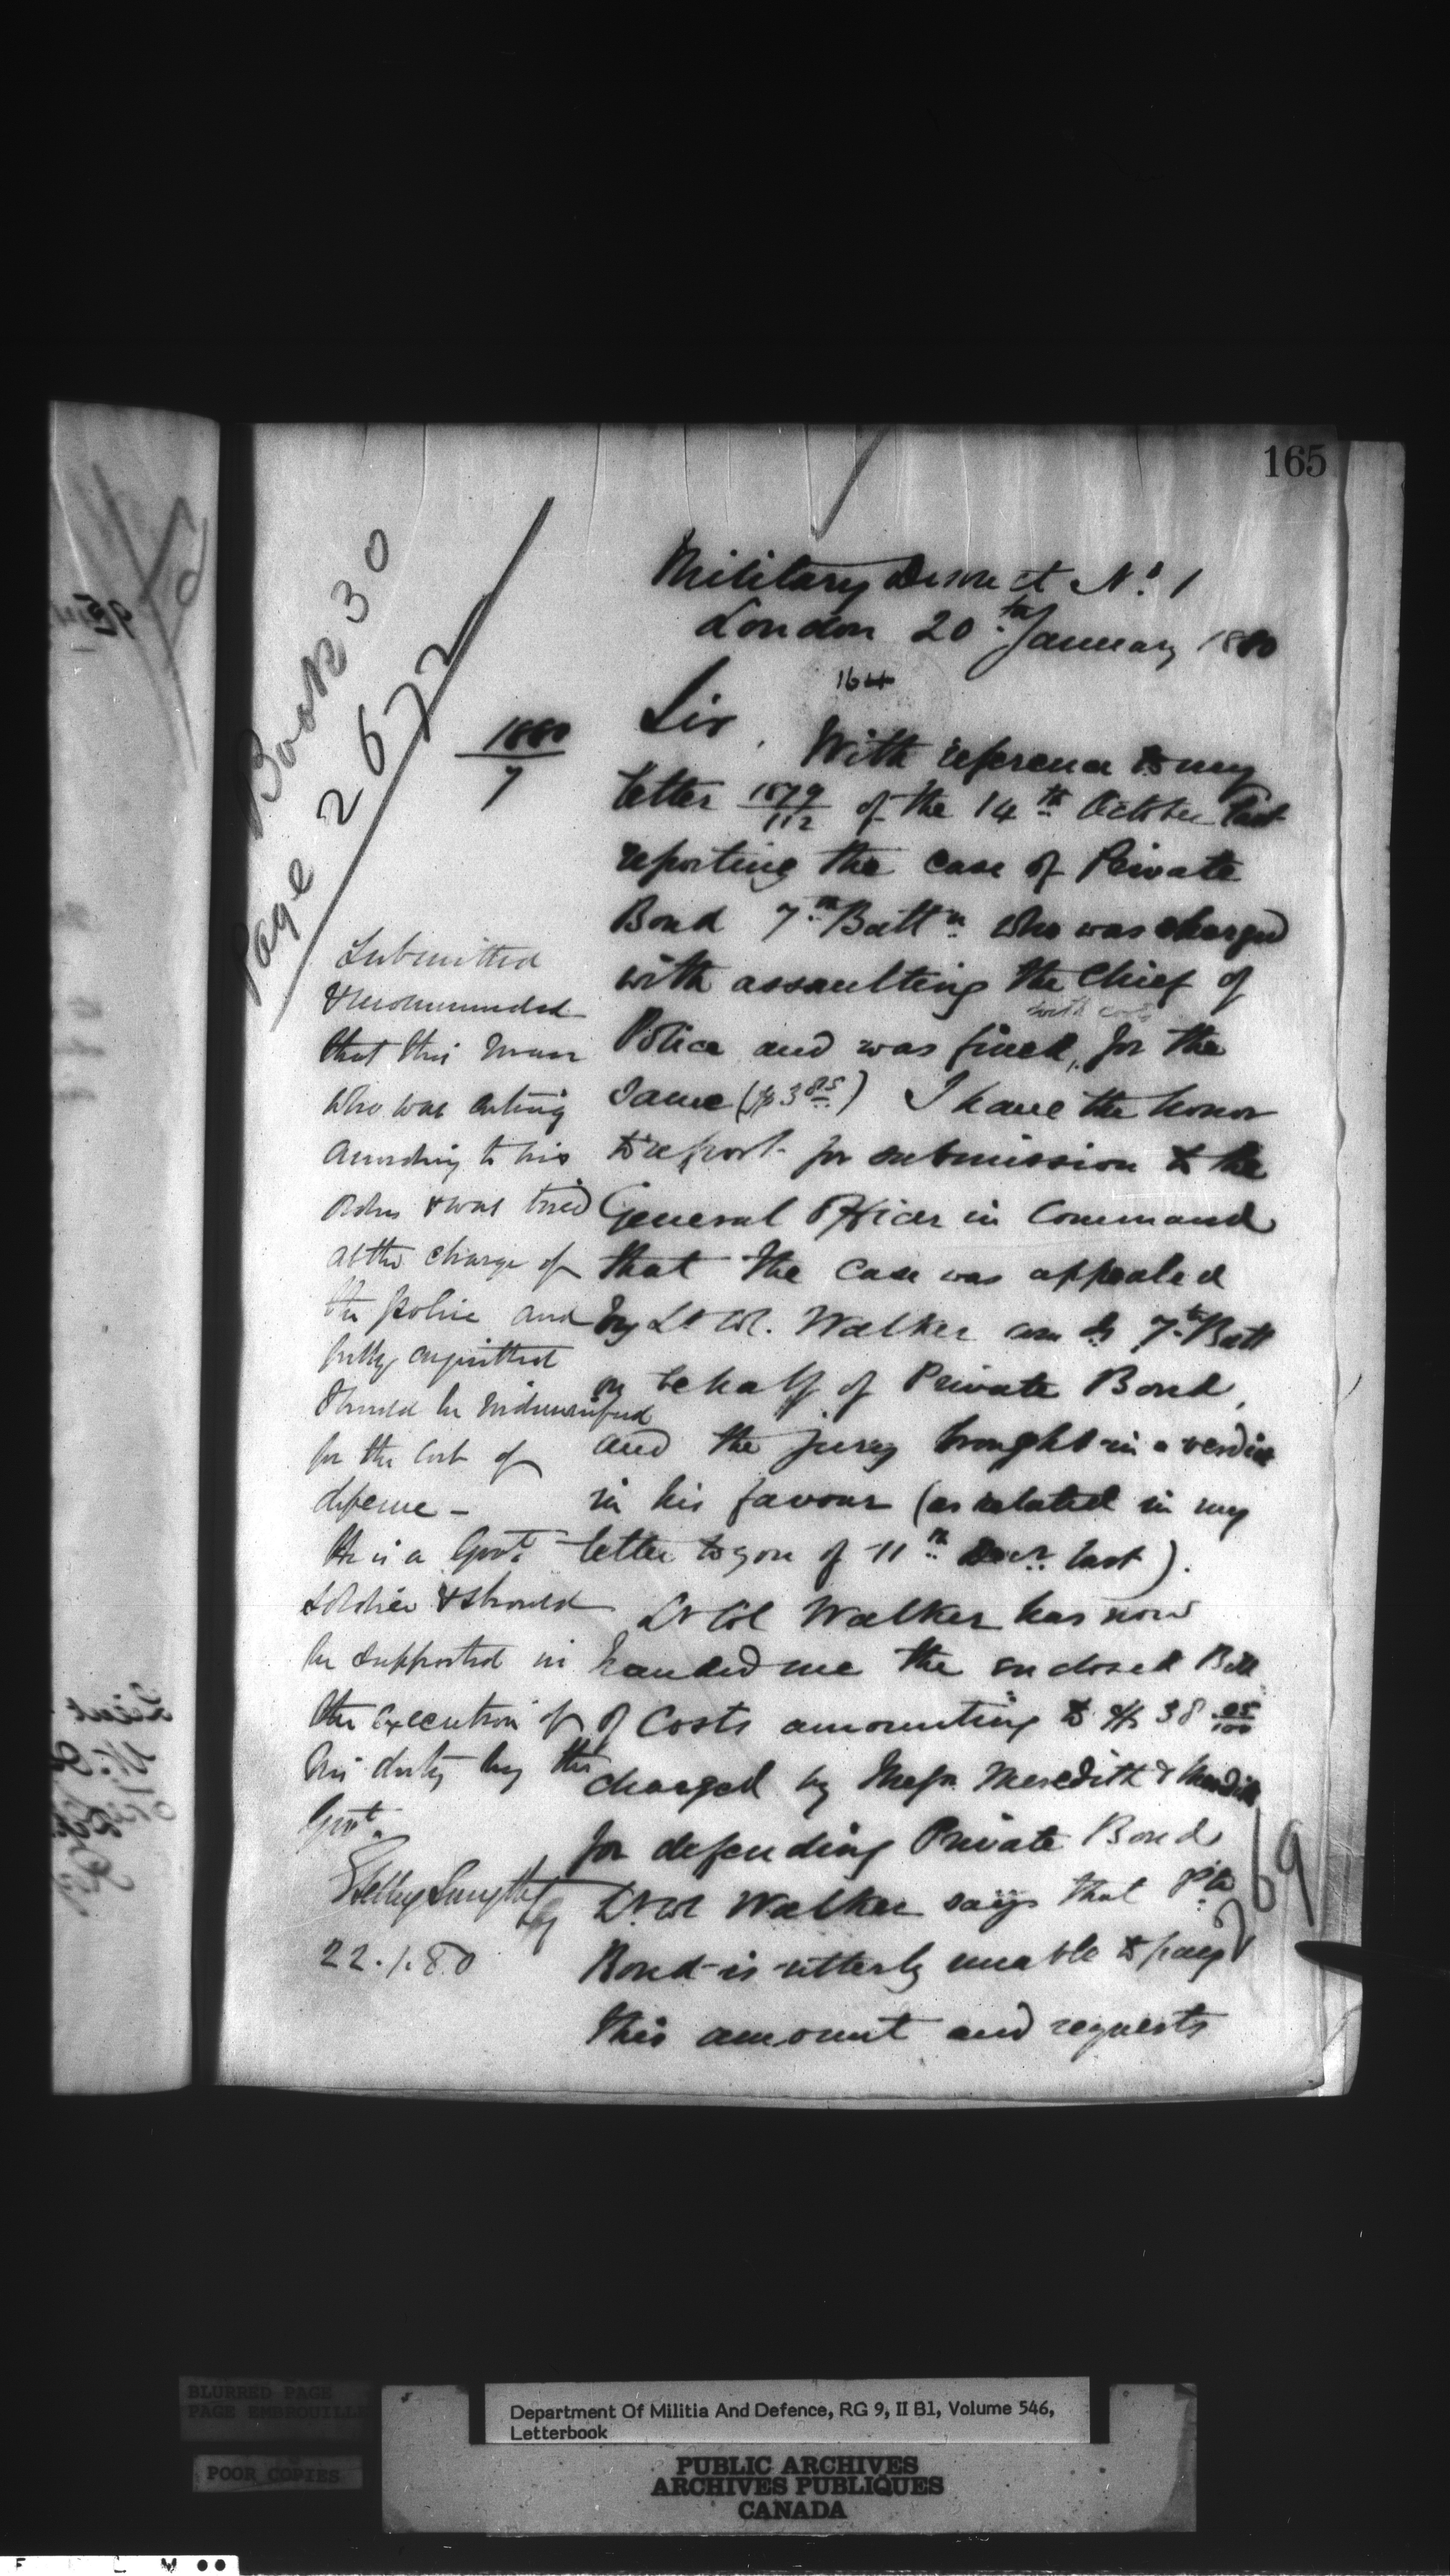 165
Book 30
Page 2672
Military District No. 1
London 20th January 1880
164
1880
7
Sir,
With reference to my
letter 1879/112 of the 14th October last
reporting the case of Private
Bond 7th Battn. who was charged
with assaulting the Chief of
with costs
Police and was fined, for the
same ($3 85) I have the honor
to report for submission to the
General Officer in Command
that the case was appealed
by Lt Col. Walker comdg 7th Batt
on behalf of Private Bond,
and the jury brought in a verdict
in his favour (as related in my
letter to you of 11th Decr. last).
Lt Col Walker has now
handed me the enclosed Bill
of Costs amounting to $38 05/100
charged by Messrs Meredith & Meredith
for defending Private Bond
Lt. Col Walker says that Pte
Bond is utterly unable to pay
this amount and requests
269
Submitted
& recommended
that this man
who was acting
according to his
orders & was tried
at the charge of
the police and
fully acquitted
should be indemnified
for the cost of
defence -
He is a Govt.
soldier & should
be supported in
the execution of
his duty by the
Govt.
Selby Smyth
22.1.80
BLURRED PAGE
PAGE EMBROUILLE
POOR COPIES
Department Of Militia And Defence, RG 9, II B1, Volume 546,
Letterbook
PUBLIC ARCHIVES
ARCHIVES PUBLIQUES
CANADA